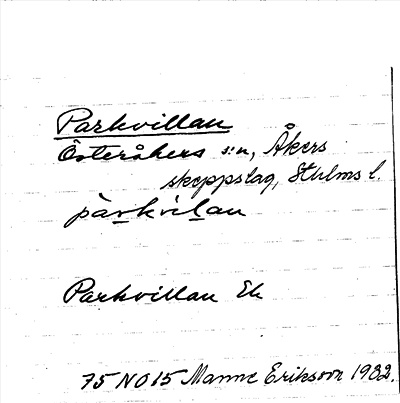 Parkvillan
Österåkers s:n, Åkers
skeppslag, Sthlms l.
pàrkvìlan
Parkvillan Ek
75 NO 15 Manne Eriksson 1932.